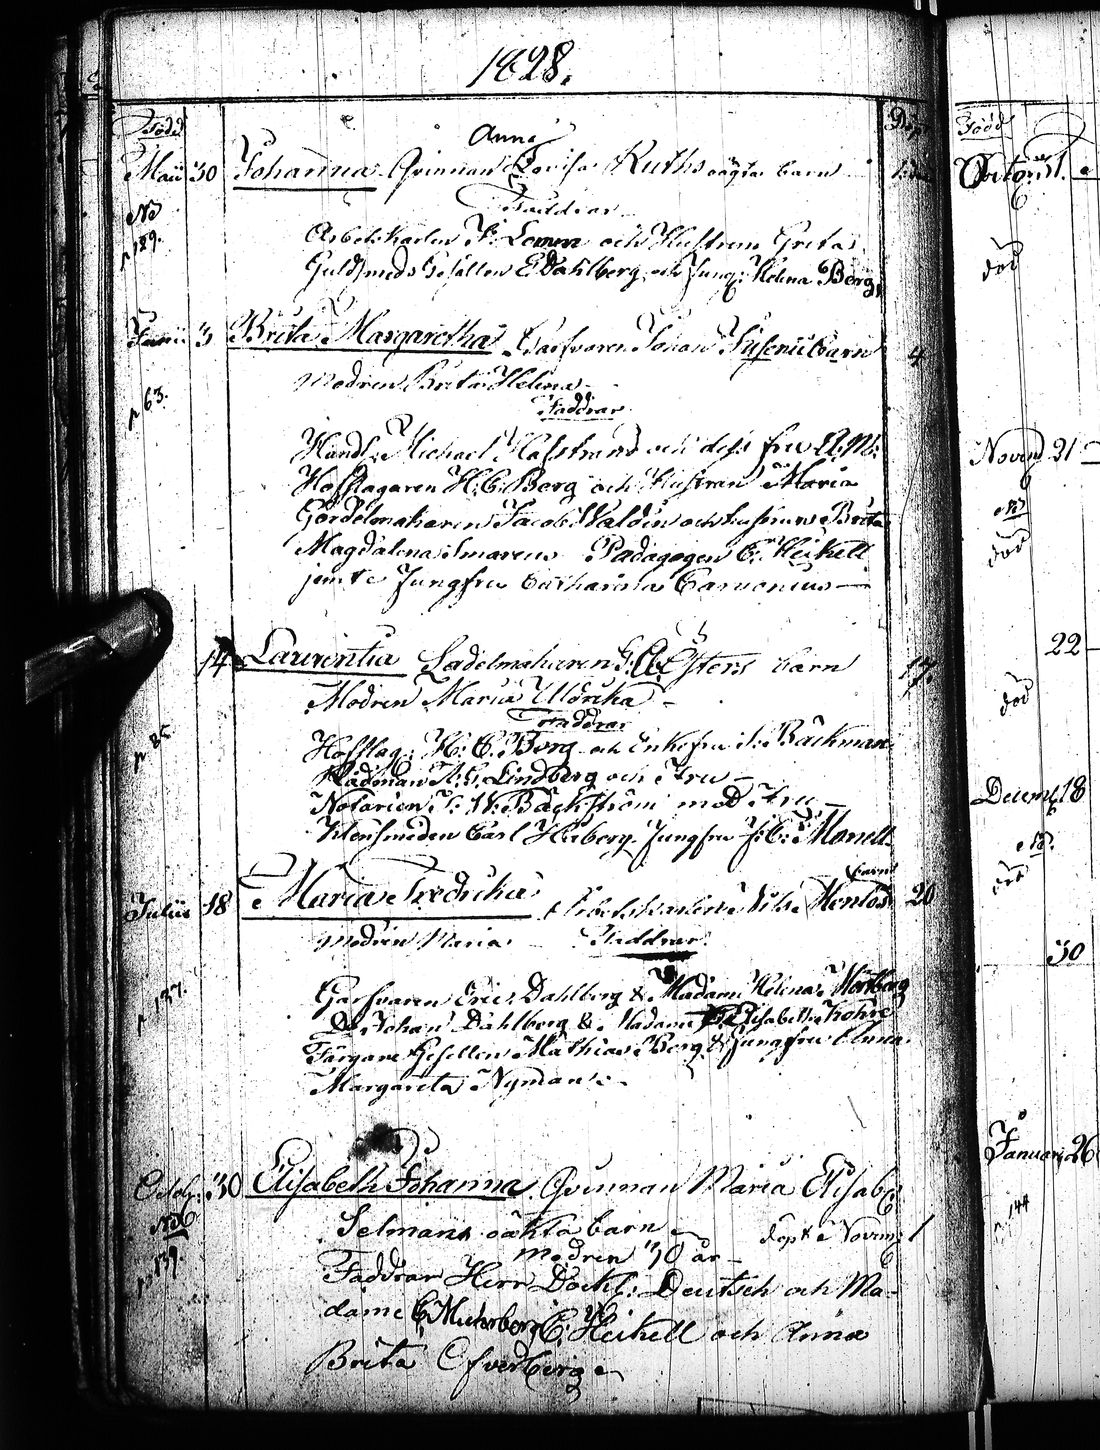 1828.
Född Döpt
Anna
Maii 30 Johanna Qvinnan Lovisa Ruths oägta barn
No Faddrar
p 189. Arbetskarlen J: Lemm och Hustrun Greta
Guldsmeds Gesällen E Dahlberg och Jungf: Helena Berg,
Junii 3 Brita Margaretha Garfvaren Johan barn 4
Modren Brita Helena
p 63. Faddrar
Handl: Michael Hafstrand och dess fru A: M:
Hofslagaren H: C: Berg och Hustrun Maria
Gördelmakaren Jacob Waldin och hustrun Brita
Magdalena Pædagogen C: Heikell
jemte Jungfru Catharina
14 Laurentia Sadelmakaren G: A: Östens barn 17.
Modren Maria Uldrika
Faddrar
p 85 Hofslag: H: C: Berg och Enkefru S: Bäckman
Rådman A: G: Lindberg och Fru
Notarien J: W: Bäckström med Fru
Klensmeden Carl Höberg Jungfru J: C: Monell
barn
Julii 18 Maria Fredrika Arbetskarlen Nils 20
Modren Maria Faddrar
p 137. Garfvaren Eric Dahlberg & Madame Helena
Do Johan Dahlberg & Madame Elisabeth
Färgare Gesellen Mathias Berg & Jungfru Anna
Margareta Nyman
Octob: 30 Elisabeth Johanna Qvinnan Maria Elisab:
No Selmans oäkta barn döpt Novemb: 1
modren 30 år
p 139. Faddrar Herr Dockt: Deutsch och Ma-
dame C Muhrberg C: Heikell och Anna
Brita Öfverberg
Född
Octobr: 31.
död
Novemb 21
No
död
22
död
Decemb. 18
No.
död
30
Januari 26
p. 144